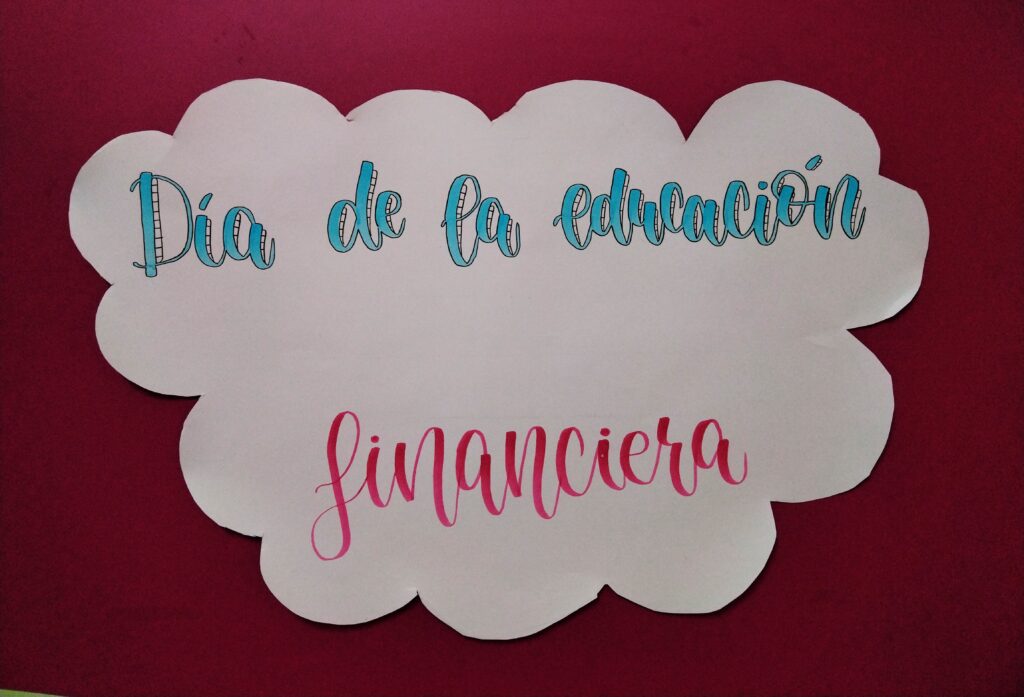 Día de la educación
financiera